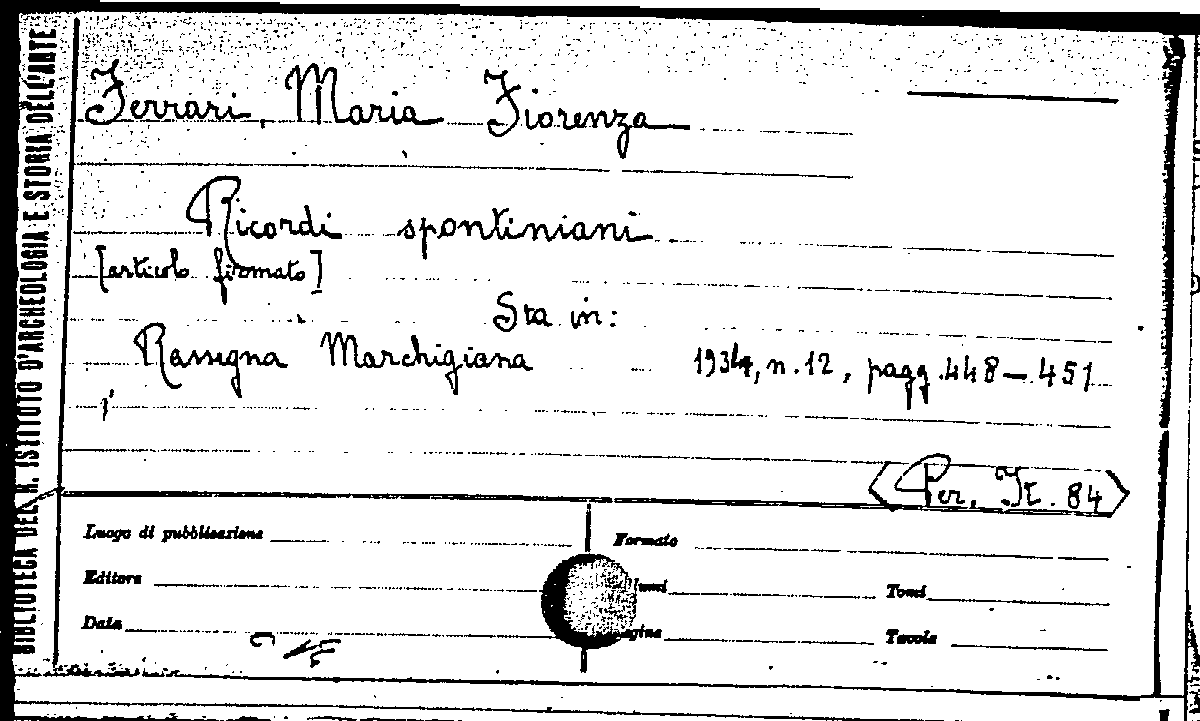 BIBLIOTECA DEL R. ISTITUTO D'ARCHEOLOGIA E STORIA DELL'ARTE
Ferrari, Maria Fiorenza
Ricordi spontiniani
[articolo firmato]
Sta in:
Rassegna Marchigiana 1934, n. 12, pagg. 448-451
Per. It. 84
Luogo di pubblicazione Formato
Editore lumi Tomi
Data agine Tavole